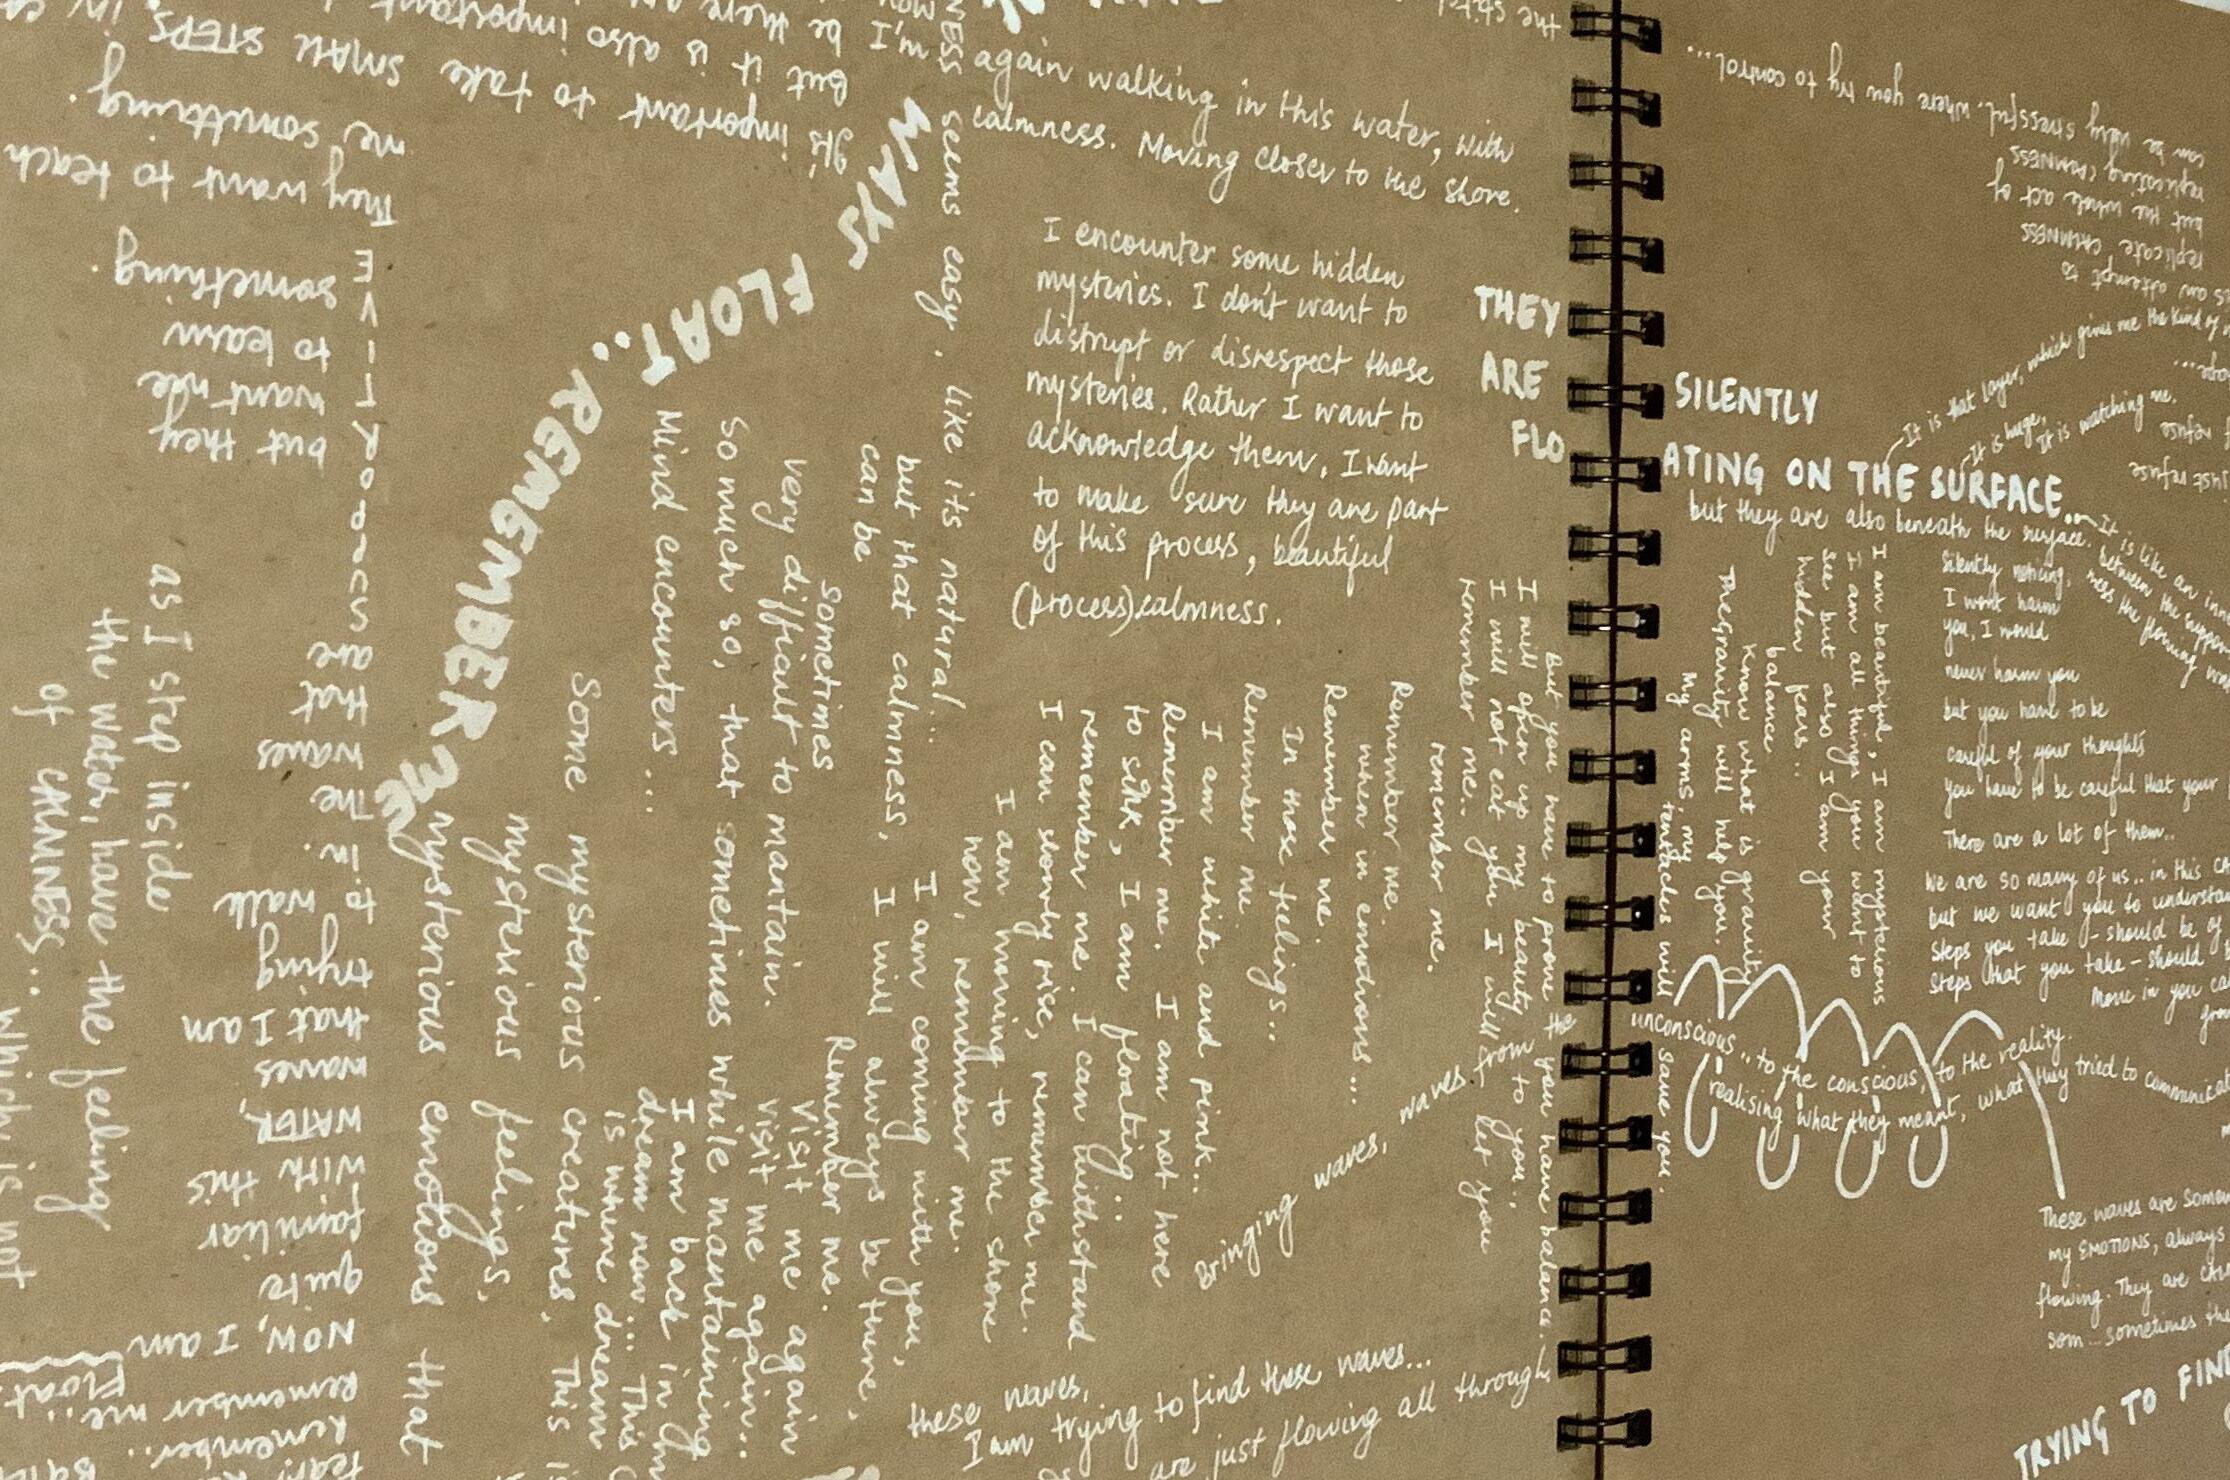 again walking in this water, with
calmness. Moving closer to the shore.
I encounter some hidden
mysteries. I don't want to
distrupt or disrespect those
mysteries. Rather I want to
acknowledge them, I want
to make sure they are part
of this process, beautiful
(process) calmness.
THEY
ARE SILENTLY
FLOATING ON THE SURFACE..
but they are also beneath the surface.
It is that layer, which gives me the kind of
It is huge,
It is watching me.
It is like an inn
between the suppor
ness the flowing wa
Silently noticing,
I wont harm
you, I would
never harm you
but you have to be
careful of your thoughts
You have to be careful that your
There are a lot of them..
We are so many of us.. in this CA
but we want you to understa
steps you take - should be of
steps that you take - should b
Move in you ca
I am beautiful, I am mysterious
I am all things you want to
see but also I am your
hidden fears...
balance
Know what is gravity
The gravity will help you.
My arms, my
tentacles will
save you.
unconscious.. to the conscious, to the reality.
realising what they meant, what they tried to communicat
These waves are some
my EMOTIONS, always
flowing. They are CAL
som... sometimes the
TRYING TO FIN
the shore
can be very stressful, where you try to control....
replicating CALMNESS
but the whole act of
replicate CALMNESS
is an attempt to
refuse
just refuse
But you have to prove the you have balance.
I will open up my beauty to you..
I will not eat you I will let you
remember me..
remember me.
Remember me.
when in emotions...
Remember me.
In those feelings...
Remember me.
I am white and pink...
Remember me. I am not here
to sink, I am floating..
remember me. I can withstand
I can slowly rise, remember me.
I am moving to the shore
now, remember me.
I am coming with you,
I will always be there,
Remember me.
Visit me again
visit me again..
I am back in my
dream now... This
is where dream
Bringing waves, waves from the
these waves,
I am trying to find these waves...
are just flowing all through
NESS seems easy. like its natural...
but that calmness,
can be
sometimes
very difficult to mantain.
So much so, that sometimes while mantaining
Mind encounters...
Some mysterious creatures, This is
mysterious feelings,
mysterious emotions that
WAYS FLOAT... REMEMBER ME
It's important to take SMALL STEPS,
but it is also important
I'm be there
They want to teach
me something.
but they
want me
to learn
something.
Remember..
Remember me..
Float.
NOW, I am
quite
familiar
with this
WATER,
waves
that I am
trying
to walk
in. The
waves
that
are
as I step inside
the water, have the feeling
of CALMNESS...
which is not